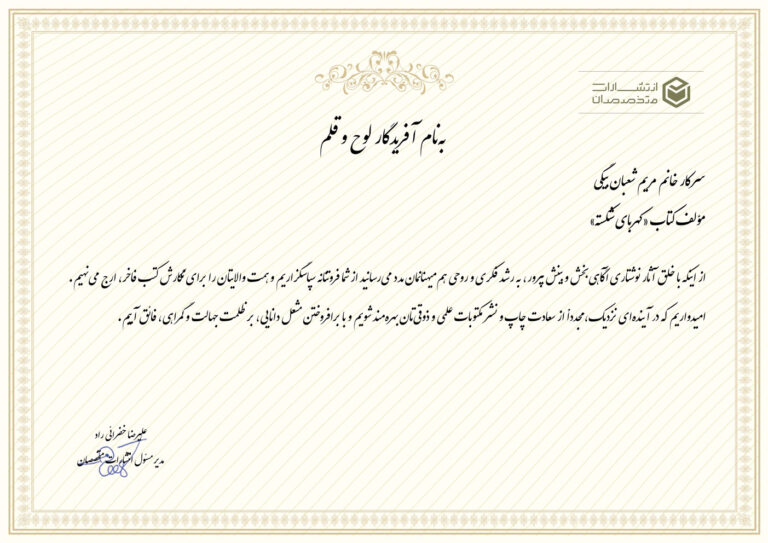 انتشارات
متخصصان
به‌نام آفریدگار لوح و قلم
سرکار خانم مریم شعبان بیگی
مؤلف کتاب «کهربای شکسته»
از اینکه با خلق آثار نوشتاری آگاهی‌بخش و بینش پرور، به رشد فکری و روحی هم میهنانمان مدد می‌رسانید از شما فروتنانه سپاسگزاریم و همت والایتان را برای نگارش کتب فاخر، ارج می‌نهیم.
امیدواریم که در آینده‌ای نزدیک، مجدداً از سعادت چاپ و نشر مکتوبات علمی و ذوقی‌تان بهره‌مند شویم و با برافروختن مشعل دانایی، بر ظلمت جهالت و گمراهی، فائق آییم.
علیرضا خفرائی راد
مدیر مسئول انتشارات متخصصان